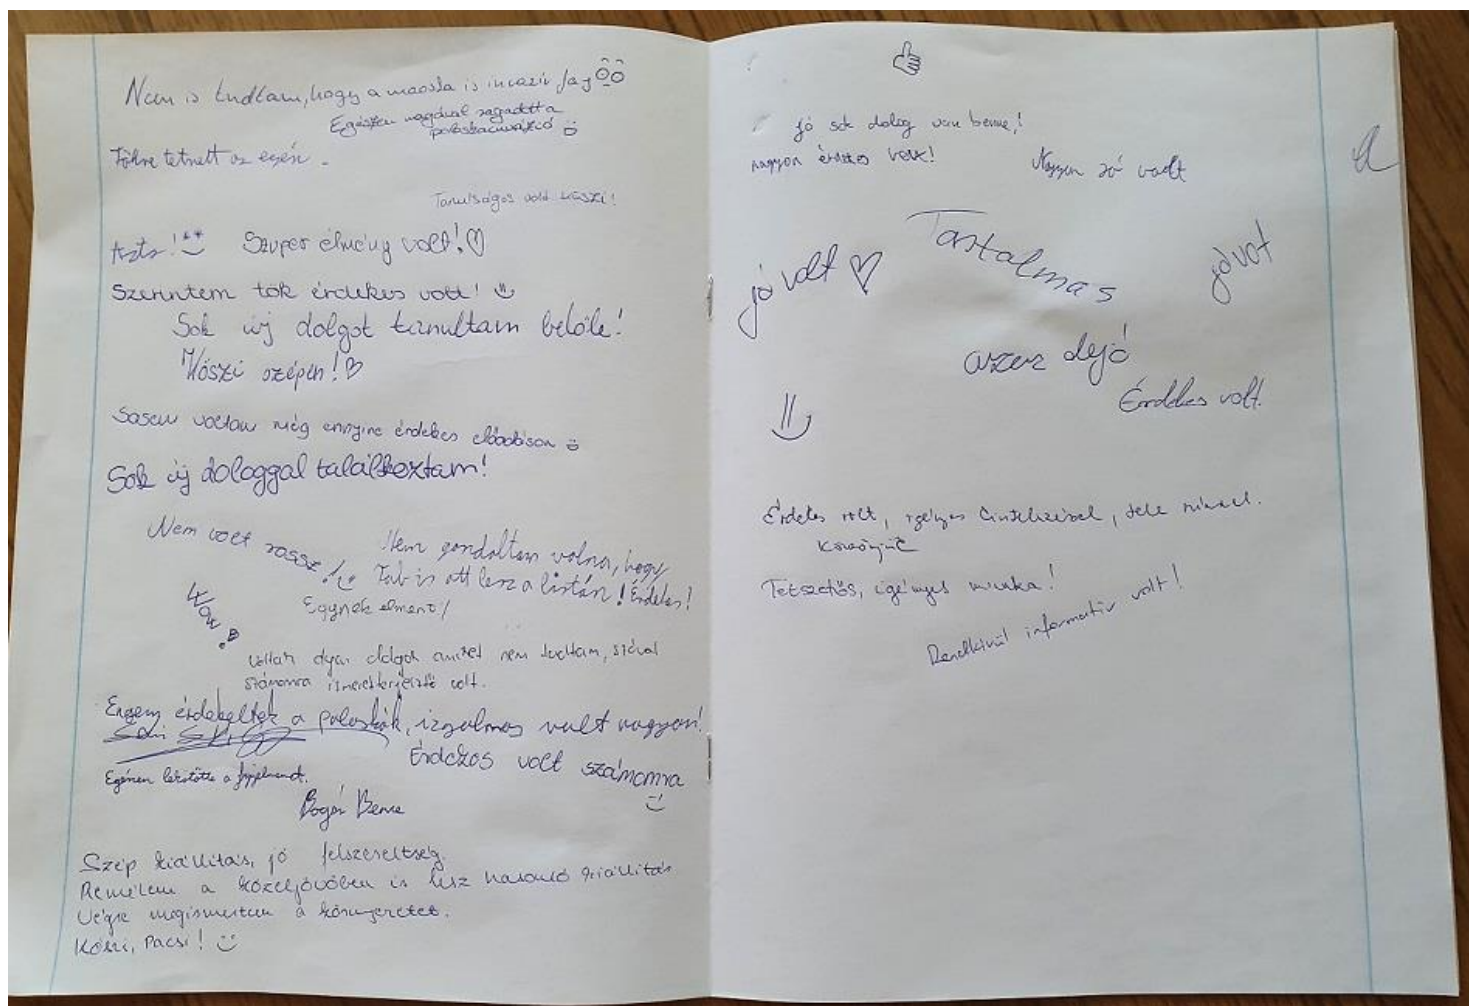 Nem is tudtam, hogy a macska is invazív faj
Egészen magával ragadott a
poloskainvázió
Tökre tetszett az egész.
Tanulságos volt köszi!
Azta!
Szuper élmény volt!
Szerintem tök érdekes volt!
Sok új dolgot tanultam belőle!
Köszi szépen!
Sosem voltam még ennyire érdekes előadáson
Sok új dologgal találkoztam!
Nem volt rossz!
Nem gondoltam volna, hogy
is ott lesz a listán! Érdekes!
Egynek elment!
Wow!
Voltak olyan dolgok amiket nem tudtam, szóval
számomra ismeretterjesztő volt.
Engem érdekeltek a poloskák, izgalmas vult nagyon!
Érdekes volt számomra
Egészen lekötötte a figyelmemet.
Bogár Bence
Szép kiállítás, jó felszereltség.
Remélem a közeljövőben is lesz hasonló kiállítás
Végre megismertem a környezetet.
Köszi, Pacsi!
Jó sok dolog van benne,!
nagyon érdekes volt!
Nagyon jó vót
Tartalmas
jó volt
jó vót
azér dejó
Érdekes volt.
Érdekes volt, igényes tele
Köszönjük
Tetszetős, igényes munka!
Rendkívül informatív volt!